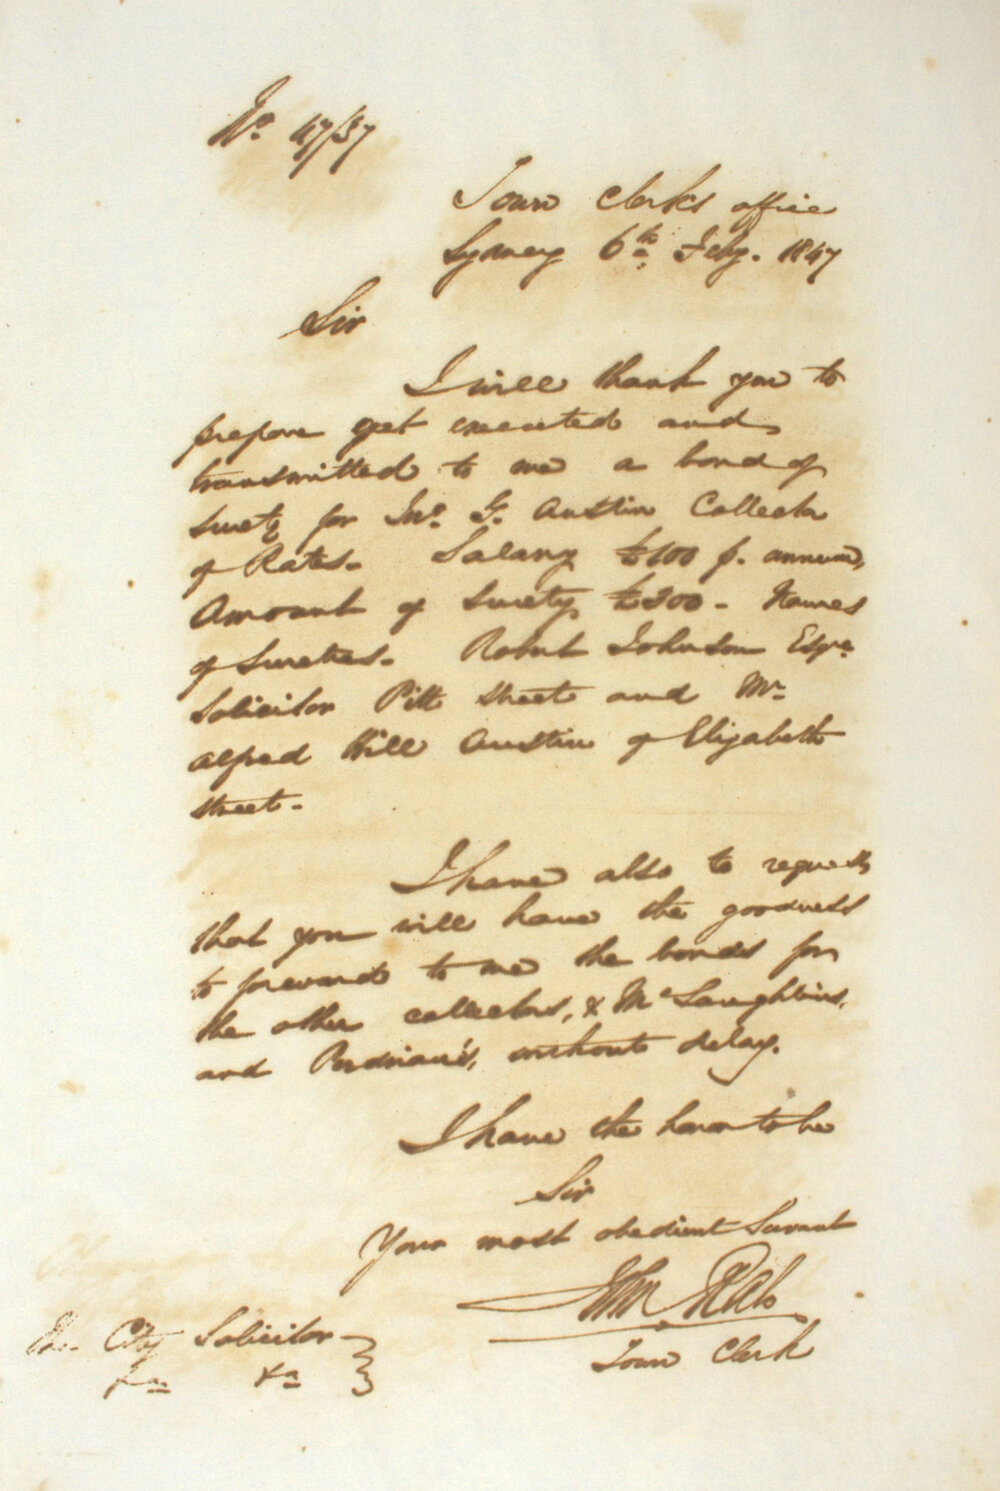 No. 47/37
Town Clerks office
Sydney 6th Feby. 1847
Sir
I will thank you to
prepare get executed and
transmitted to me a bond of
surety for Jno. G. Austin Collector
of Rates. Salary £100 p. annum,
Amount of Surety £300 - Names
of Sureties. Robert Johnson Esqre
Solicitor Pitt Street and Mr
Alfred Hill Austin of Elizabeth
Street.
I have also to request
that you will have the goodness
to forward to me the bonds for
the other collectors, & McLaughlins,
and without delay.
I have the honor to be
Sir
Your most obedient Servant
John
Town Clerk
The City Solicitor
&c &c